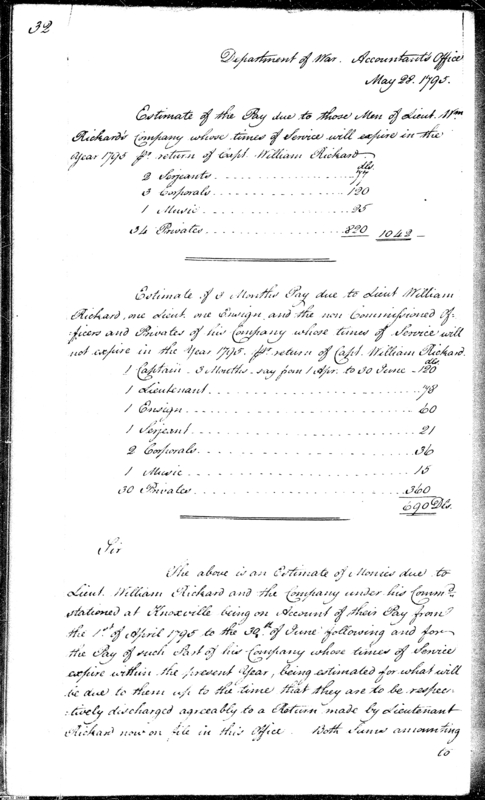 32
Department of War. Accountant's Office
May 28. 1795.
Estimate of the Pay due to those Men of Lieut. Wm
Rickard's Company whose times of Service will expire in the
Year 1795 pr. return of Capt. William Rickard
dls.
2 Serjeants 77
3 Corporals 120
1 Music 25
34 Privates 820 1042 —
Estimate of 3 Months Pay due to Lieut William
Rickard, one Lieut. one Ensign, and the non Commissioned Of-
ficers and Privates of his Company whose times of Service will
not expire in the Year 1795. pr. return of Capt. William Rickard.
dls
1 Captain - 3 Months - say from 1 Apr. to 30 June - 120
1 Lieutenant 78
1 Ensign 60
1 Serjeant 21
2 Corporals 36
1 Music 15
30 Privates 360
690 Dls.
Sir
The above is an Estimate of Monies due to
Lieut. William Rickard and the Company under his Commd.
stationed at Knoxville being on Account of their Pay from
the 1st of April 1795 to the 30th of June following and for
the Pay of such Part of his Company whose times of Service
expire within the present Year, being estimated for what will
be due to them up to the time that they are to be respec-
:tively discharged agreeably to a Return made by Lieutenant
Rickard now on file in this Office. Both Sums amounting
to